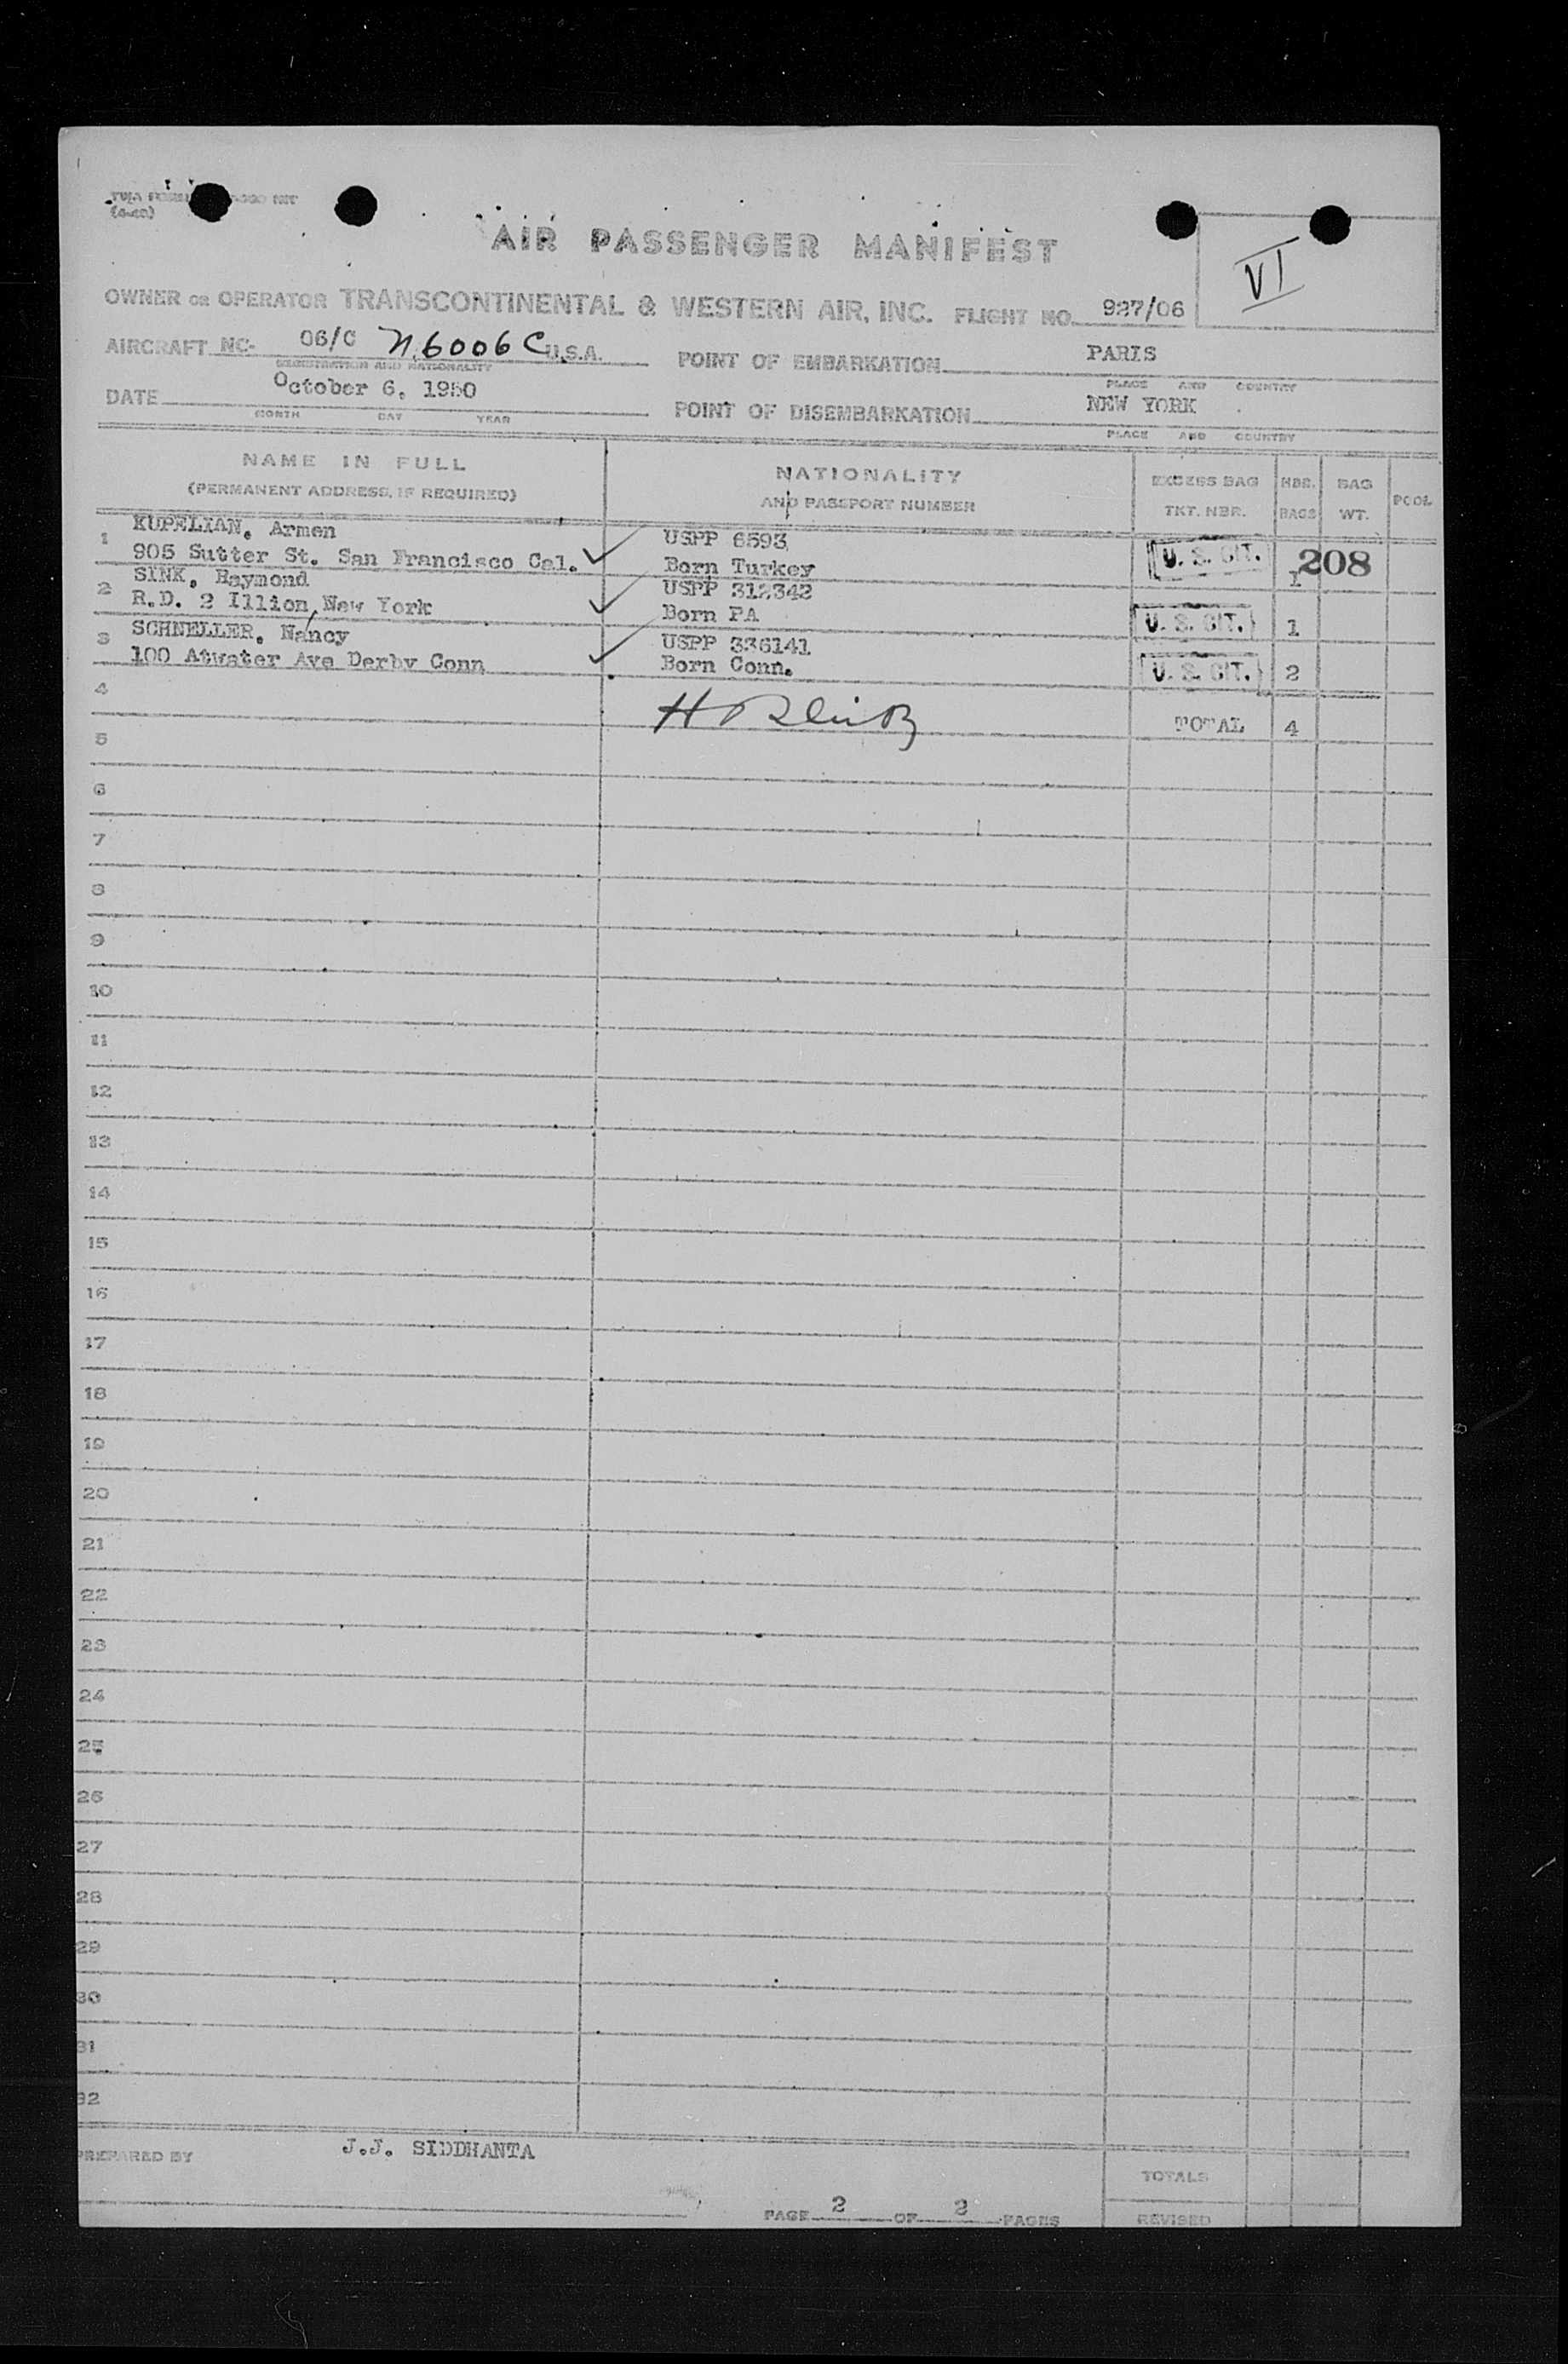 (4-48)
AIR PASSENGER MANIFEST
VI
OWNER OR OPERATOR TRANSCONTINENTAL & WESTERN AIR, INC. FLIGHT NO. 927/06
AIRCRAFT NC- 06/C N6006C U.S.A. POINT OF EMBARKATION PARIS
REGISTRATION AND NATIONALITY PLACE AND COUNTRY
DATE October 6, 1950 POINT OF DISEMBARKATION NEW YORK
MONTH DAY YEAR PLACE AND COUNTRY
NAME IN FULL NATIONALITY EXCESS BAG NBR. BAG POOL
(PERMANENT ADDRESS, IF REQUIRED) AND PASSPORT NUMBER TKT. NBR. BAGS WT.
1 KUPELIAN, Armen USPP 6593 U. S. CIT. 1 208
905 Sutter St. San Francisco Cal. Born Turkey
2 SINK, Raymond USPP 312342
R.D. 2 Illion, New York Born PA U. S. CIT. 1
3 SCHNELLER, Nancy USPP 336141
100 Atwater Ave Derby Conn Born Conn. U. S. CIT. 2
4
TOTAL 4
5
6
7
8
9
10
11
12
13
14
15
16
17
18
19
20
21
22
23
24
25
26
27
28
29
30
31
32
PREPARED BY J.J. SIDDHANTA
TOTALS
PAGE 2 OF 2 PAGES REVISED